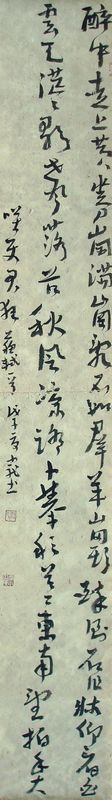 醉中走上黄茅岡滿岡亂石如群羊岡頭醉倒石作牀仰看白
雲天茫茫歌聲落谷秋風長路人舉首東南望拍手大
笑使君狂 蘇軾詩 戊子夏 書